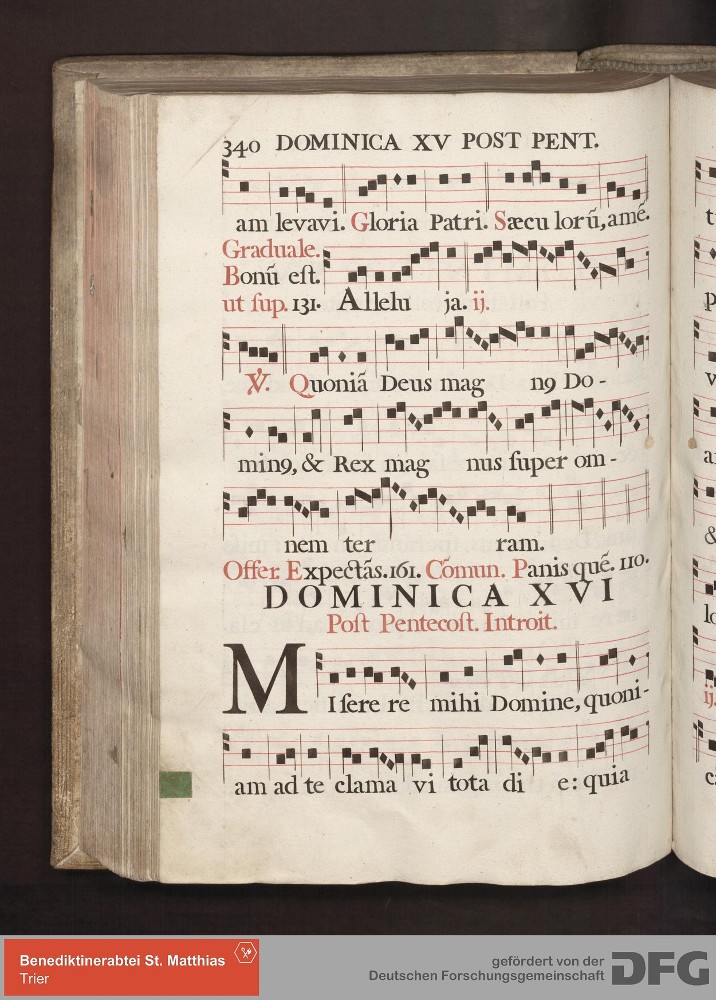 340 DOMINICA XV POST PENT.
am levavi. Gloria Patri. Sæcu lorũ, amẽ.
Graduale.
Bonũ eſt.
ut ſup. 131. Allelu ja. ij.
℣. Quoniã Deus mag n9 Do -
min9, & Rex mag nus ſuper om -
nem ter ram.
Offer. Expectãs. 161. Cõmun. Panis quẽ. 110.
DOMINICA XVI
Poſt Pentecoſt. Introit.
MIſere re mihi Domine, quoni-
am ad te clama vi tota di e: quia
t
p
v
a
&
lo
ij.
c
Benediktinerabtei St. Matthias
Trier
gefördert von der
Deutschen Forschungsgemeinschaft
DFG